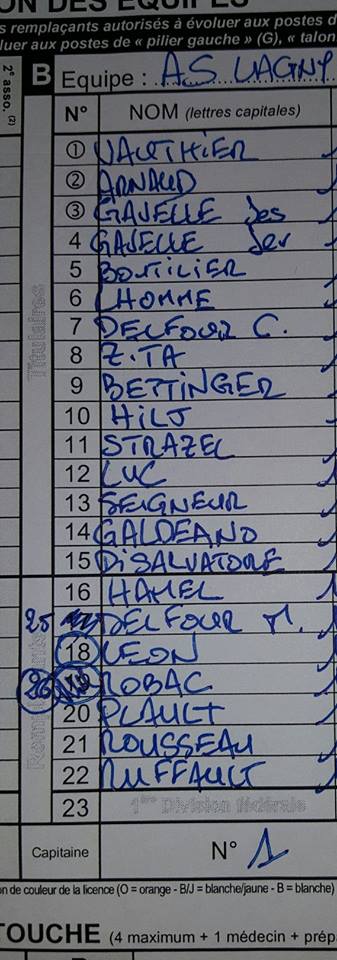 ON DES EQUIPES
s remplaçants autorisés à évoluer aux postes d
luer aux postes de « pilier gauche » (G), « talon
2e asso. (2)
B Equipe : A.S. LAGNY
N° NOM (lettres capitales)
Titulaires
1 VAUTHIER
2 ARNAUD
3 GAVELLE Jes
4 GAVELLE Jer
5 BOUTILIER
6 LHOMME
7 DELFOUR C.
8 Z.TA
9 BETTINGER
10 HILS
11 STRAZEL
12 LUC
13 SEIGNEUR
14 GALDEANO
15 DISALVATORE
Remplaçants
16 HAMEL
25 DELFOUR M.
18 LEON
26 ROBAC
20 PLAULT
21 ROUSSEAU
22 RUFFAULT
23 1ère Division fédérale
Capitaine N° 1
on de couleur de la licence (O = orange - B/J = blanche/jaune - B = blanche)
TOUCHE (4 maximum + 1 médecin + prép